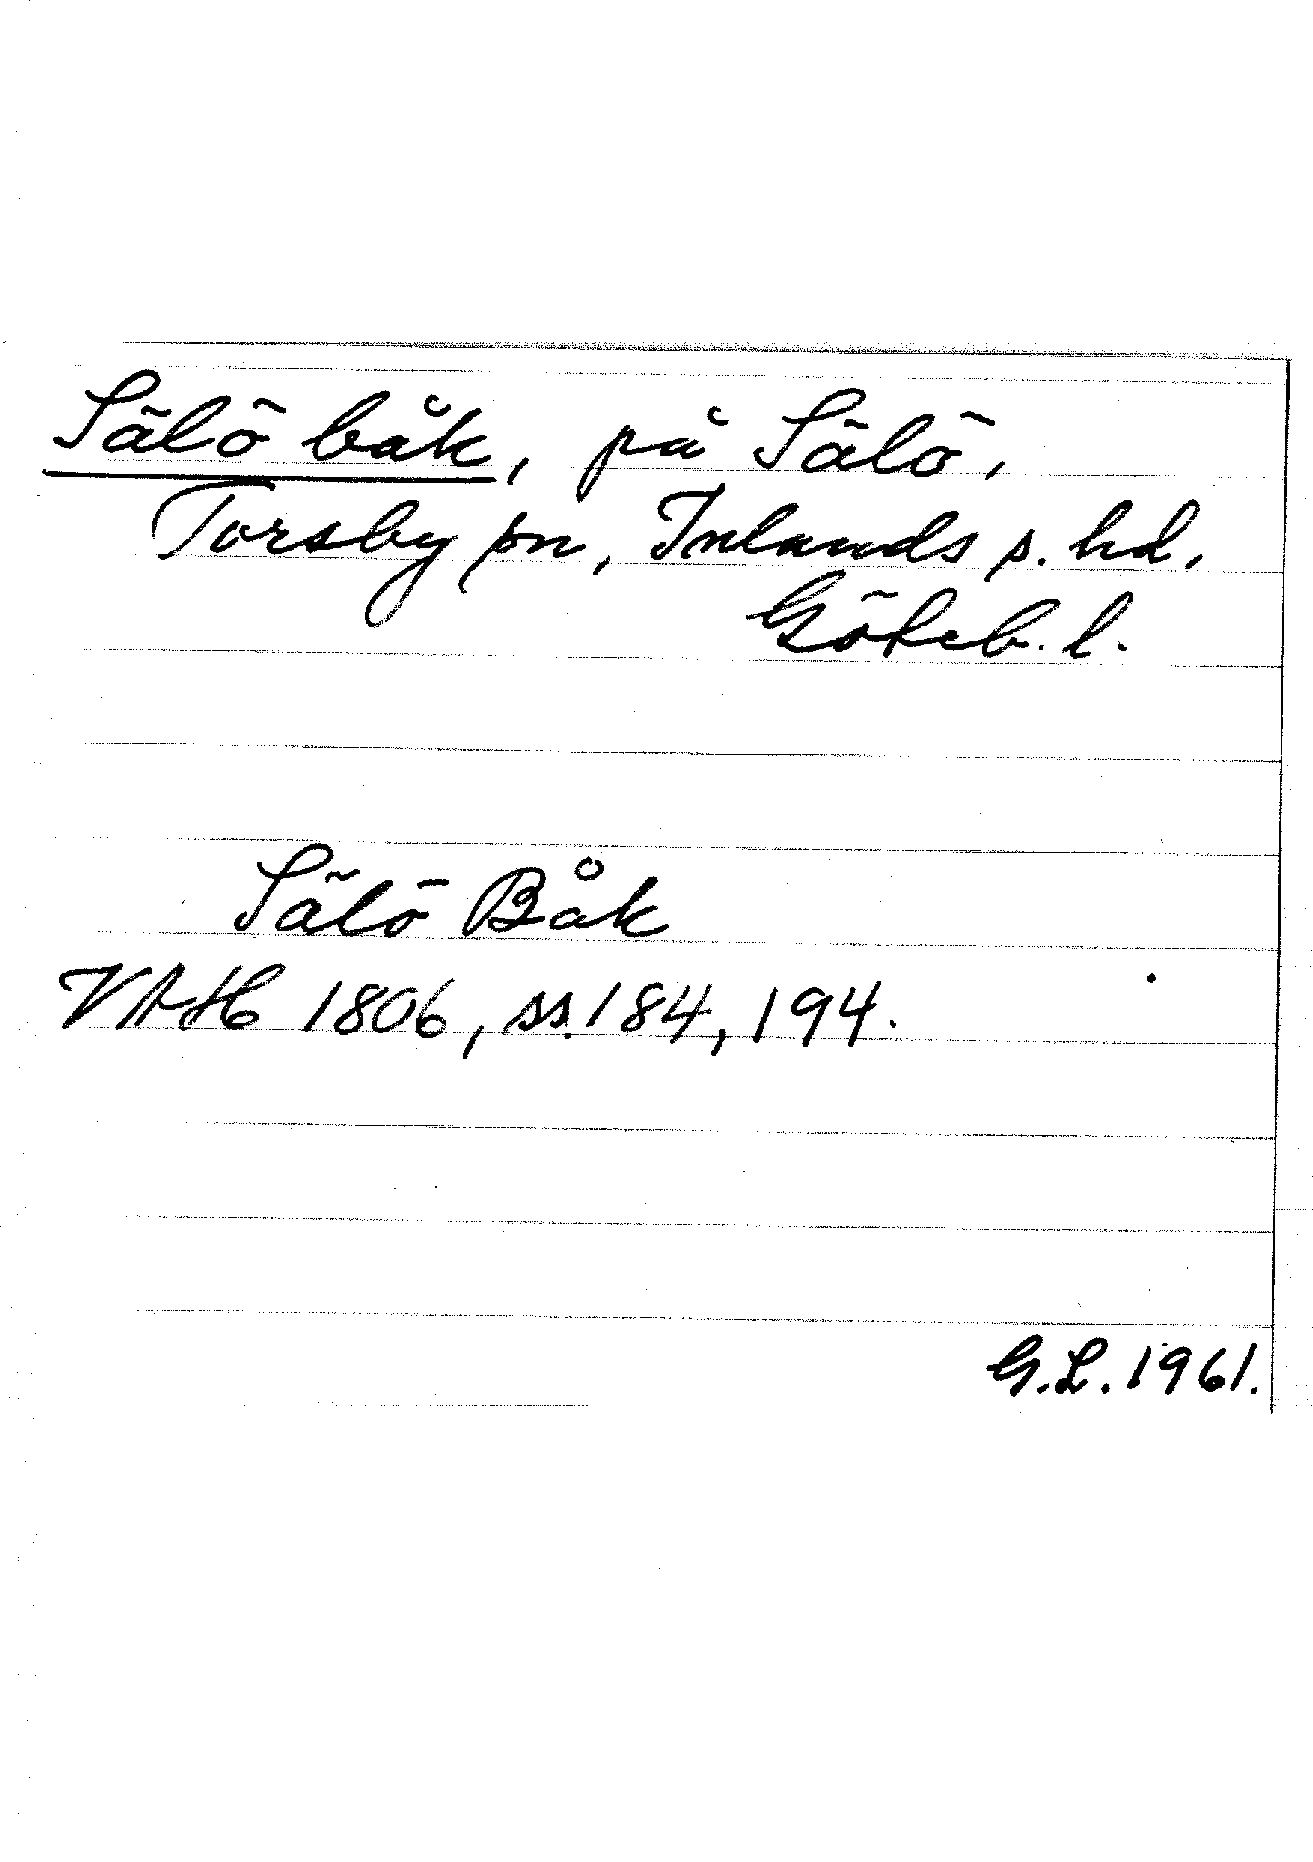 Sälö båk, på Sälö,
Torsby sn, Inlands s. hd,
Göteb. l.
Sälö Båk
VAH 1806, ss. 184, 194.
G.L. 1961.